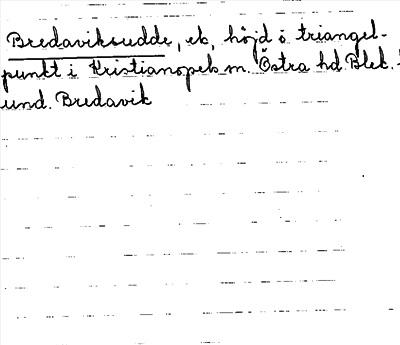 Bredaviksudde, ek, höjd o triangel-
punkt i Kristianopels m. Östra hd Blek.
und. Bredavik